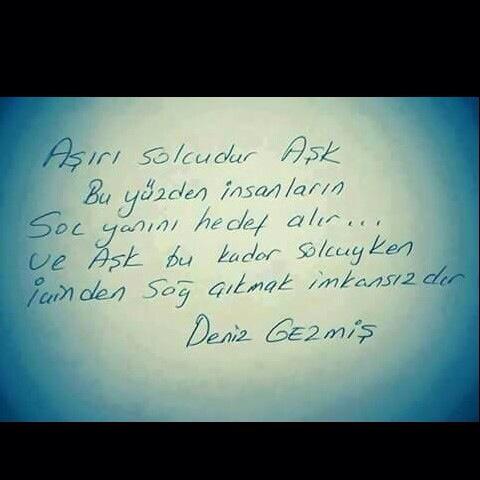 Aşırı solcudur Aşk
Bu yüzden insanların
Sol yanını hedef alır...
ve Aşk bu kadar solcuyken
İçinden Sağ çıkmak imkansızdır
Deniz GEZMİŞ